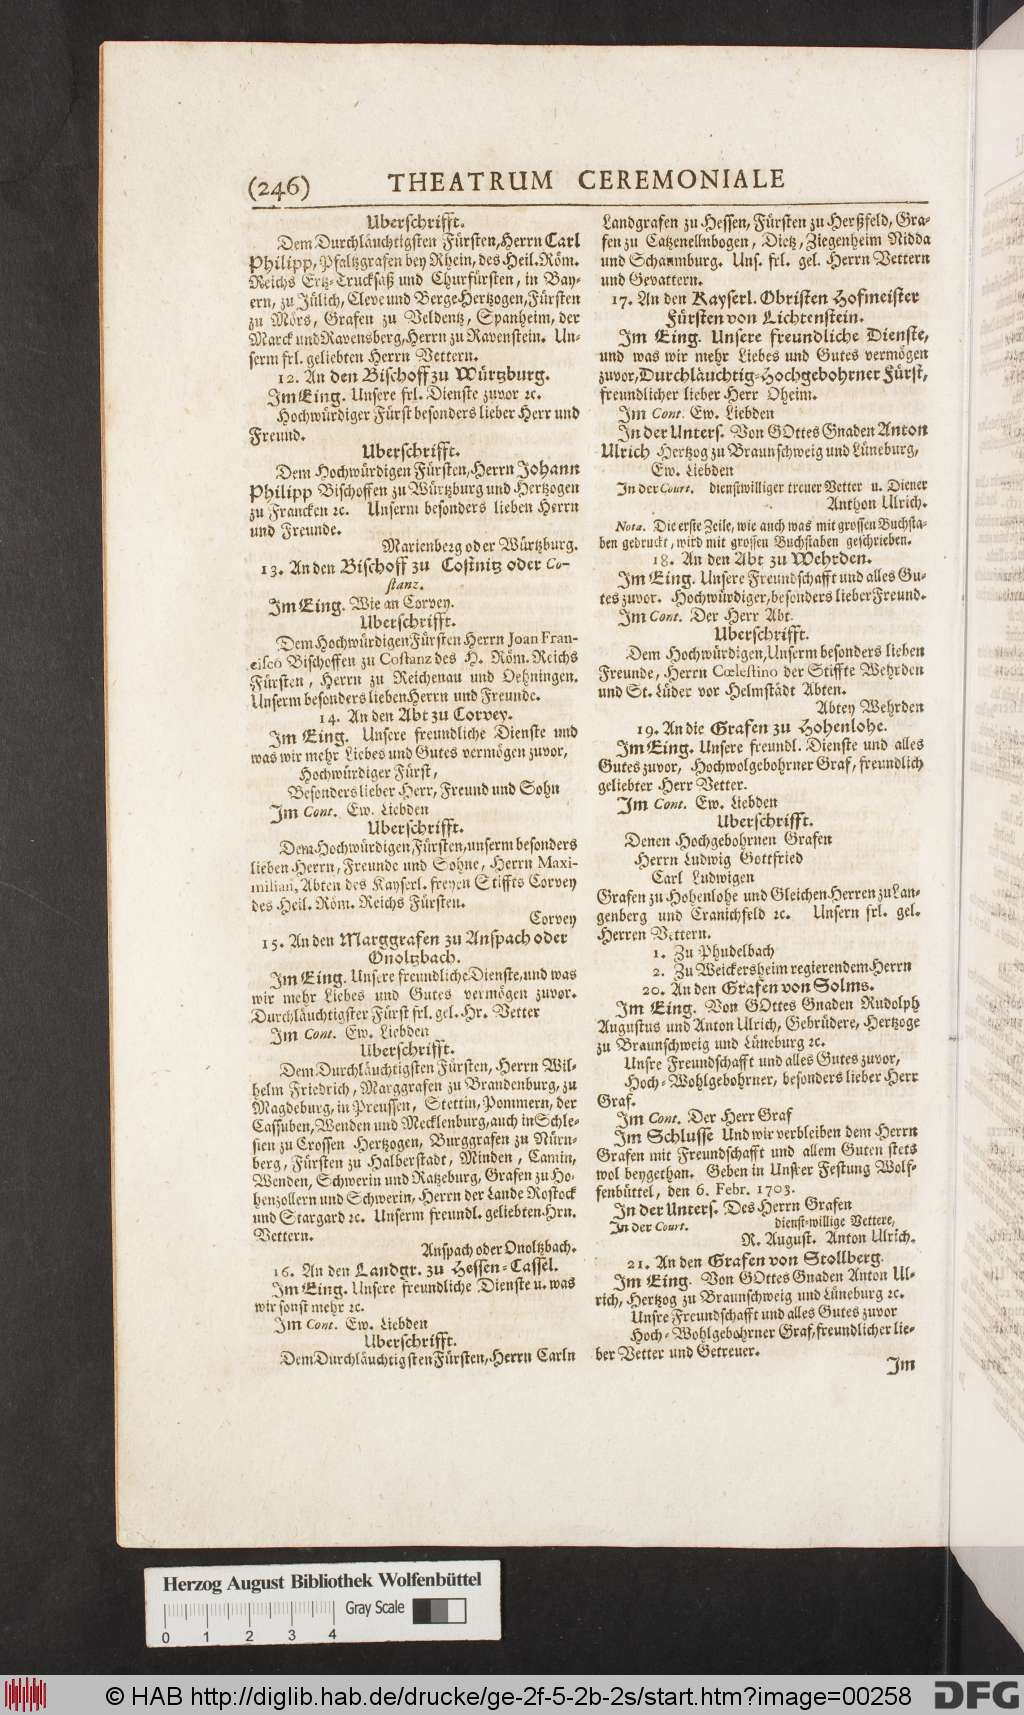 (246) THEATRUM CEREMONIALE
Uberschrifft.
Dem Durchläuchtigsten Fürsten, Herrn Carl
Philipp, Pfaltzgrafen bey Rhein, des Heil. Röm.
Reichs Ertz-Trucksäß und Churfürsten, in Bay-
ern, zu Jülich, Cleve und Berge Hertzogen, Fürsten
zu Mörs, Grafen zu Veldentz, Spanheim, der
Marck und Ravensberg, Herrn zu Ravenstein. Un-
serm frl. geliebten Herrn Vettern.
12. An den Bischoff zu Würtzburg.
Im Eing. Unsere frl. Dienste zuvor ꝛc.
Hochwürdiger Fürst besonders lieber Herr und
Freund.
Uberschrifft.
Dem Hochwürdigen Fürsten, Herrn Johann
Philipp Bischoffen zu Würtzburg und Hertzogen
zu Francken ꝛc. Unserm besonders lieben Herrn
und Freunde.
Marienberg oder Würtzburg.
13. An den Bischoff zu Costnitz oder Co-
stanz.
Im Eing. Wie an Corvey.
Uberschrifft.
Dem Hochwürdigen Fürsten Herrn Joan Fran-
cisco Bischoffen zu Costanz des H. Röm. Reichs
Fürsten, Herrn zu Reichenau und Oehningen.
Unserm besonders lieben Herrn und Freunde.
14. An den Abt zu Corvey.
Im Eing. Unsere freundliche Dienste und
was wir mehr Liebes und Gutes vermögen zuvor,
Hochwürdiger Fürst,
Besonders lieber Herr, Freund und Sohn
Im Cont. Ew. Liebden
Uberschrifft.
Dem Hochwürdigen Fürsten, unserm besonders
lieben Herrn, Freunde und Sohne, Herrn Maxi-
milian, Abten des Kayserl. freyen Stiffts Corvey
des Heil. Röm. Reichs Fürsten.
Corvey
15. An den Marggrafen zu Anspach oder
Onoltzbach.
Im Eing. Unsere freundliche Dienste, und was
wir mehr Liebes und Gutes vermögen zuvor.
Durchläuchtigster Fürst frl. gel. Hr. Vetter
Im Cont. Ew. Liebden
Uberschrifft.
Dem Durchläuchtigsten Fürsten, Herrn Wil-
helm Friedrich, Marggrafen zu Brandenburg, zu
Magdeburg, in Preussen, Stettin, Pommern, der
Cassuben, Wenden und Mecklenburg, auch in Schle-
sien zu Crossen Hertzogen, Burggrafen zu Nürn-
berg, Fürsten zu Halberstadt, Minden, Camin,
Wenden, Schwerin und Ratzeburg, Grafen zu Ho-
henzollern und Schwerin, Herrn der Lande Rostock
und Stargard ꝛc. Unserm freundl. geliebten Hrn.
Vettern.
Anspach oder Onoltzbach.
16. An den Landgr. zu Hessen-Cassel.
Im Eing. Unsere freundliche Dienste u. was
wir sonst mehr ꝛc.
Im Cont. Ew. Liebden
Uberschrifft.
Dem Durchläuchtigsten Fürsten, Herrn Carln
Landgrafen zu Hessen, Fürsten zu Herßfeld, Gra-
fen zu Catzenellnbogen, Dietz, Ziegenheim Nidda
und Schaumburg. Uns. frl. gel. Herrn Vettern
und Gevattern.
17. An den Kayserl. Obristen Hofmeister
Fürsten von Lichtenstein.
Im Eing. Unsere freundliche Dienste,
und was wir mehr Liebes und Gutes vermögen
zuvor, Durchläuchtig-Hochgebohrner Fürst,
freundlicher lieber Herr Oheim.
Im Cont. Ew. Liebden
In der Unters. Von GOttes Gnaden Anton
Ulrich Hertzog zu Braunschweig und Lüneburg,
Ew. Liebden
In der Court. dienstwilliger treuer Vetter u. Diener
Anthon Ulrich.
Nota. Die erste Zeile, wie auch was mit grossen Buchsta-
ben gedruckt, wird mit grossen Buchstaben geschrieben.
18. An den Abt zu Wehrden.
Im Eing. Unsere Freundschafft und alles Gu-
tes zuvor. Hochwürdiger, besonders lieber Freund.
Im Cont. Der Herr Abt.
Uberschrifft.
Dem Hochwürdigen, Unserm besonders lieben
Freunde, Herrn Cœlestino der Stiffte Wehrden
und St. Lüder vor Helmstädt Abten.
Abtey Wehrden
19. An die Grafen zu Hohenlohe.
Im Eing. Unsere freundl. Dienste und alles
Gutes zuvor, Hochwolgebohrner Graf, freundlich
geliebter Herr Vetter.
Im Cont. Ew. Liebden
Uberschrifft.
Denen Hochgebohrnen Grafen
Herrn Ludwig Gottfried
Carl Ludwigen
Grafen zu Hohenlohe und Gleichen Herren zu Lan-
genberg und Cranichfeld ꝛc. Unsern frl. gel.
Herren Vettern.
1. Zu Phudelbach
2. Zu Weickersheim regierendem Herrn
20. An den Grafen von Solms.
Im Eing. Von GOttes Gnaden Rudolph
Augustus und Anton Ulrich, Gebrüdere, Hertzoge
zu Braunschweig und Lüneburg ꝛc.
Unsre Freundschafft und alles Gutes zuvor,
Hoch-Wohlgebohrner, besonders lieber Herr
Graf.
Im Cont. Der Herr Graf
Im Schlusse Und wir verbleiben dem Herrn
Grafen mit Freundschafft und allem Guten stets
wol beygethan. Geben in Unsrer Festung Wolf-
fenbüttel, den 6. Febr. 1703.
In der Unters. Des Herrn Grafen
In der Court. dienst-willige Vettere,
R. August. Anton Ulrich.
21. An den Grafen von Stollberg.
Im Eing. Von GOttes Gnaden Anton Ul-
rich, Hertzog zu Braunschweig und Lüneburg ꝛc.
Unsre Freundschafft und alles Gutes zuvor
Hoch-Wohlgebohrner Graf, freundlicher lie-
ber Vetter und Getreuer.
Im
Herzog August Bibliothek Wolfenbüttel
Gray Scale
0 1 2 3 4
© HAB http://diglib.hab.de/drucke/ge-2f-5-2b-2s/start.htm?image=00258 DFG